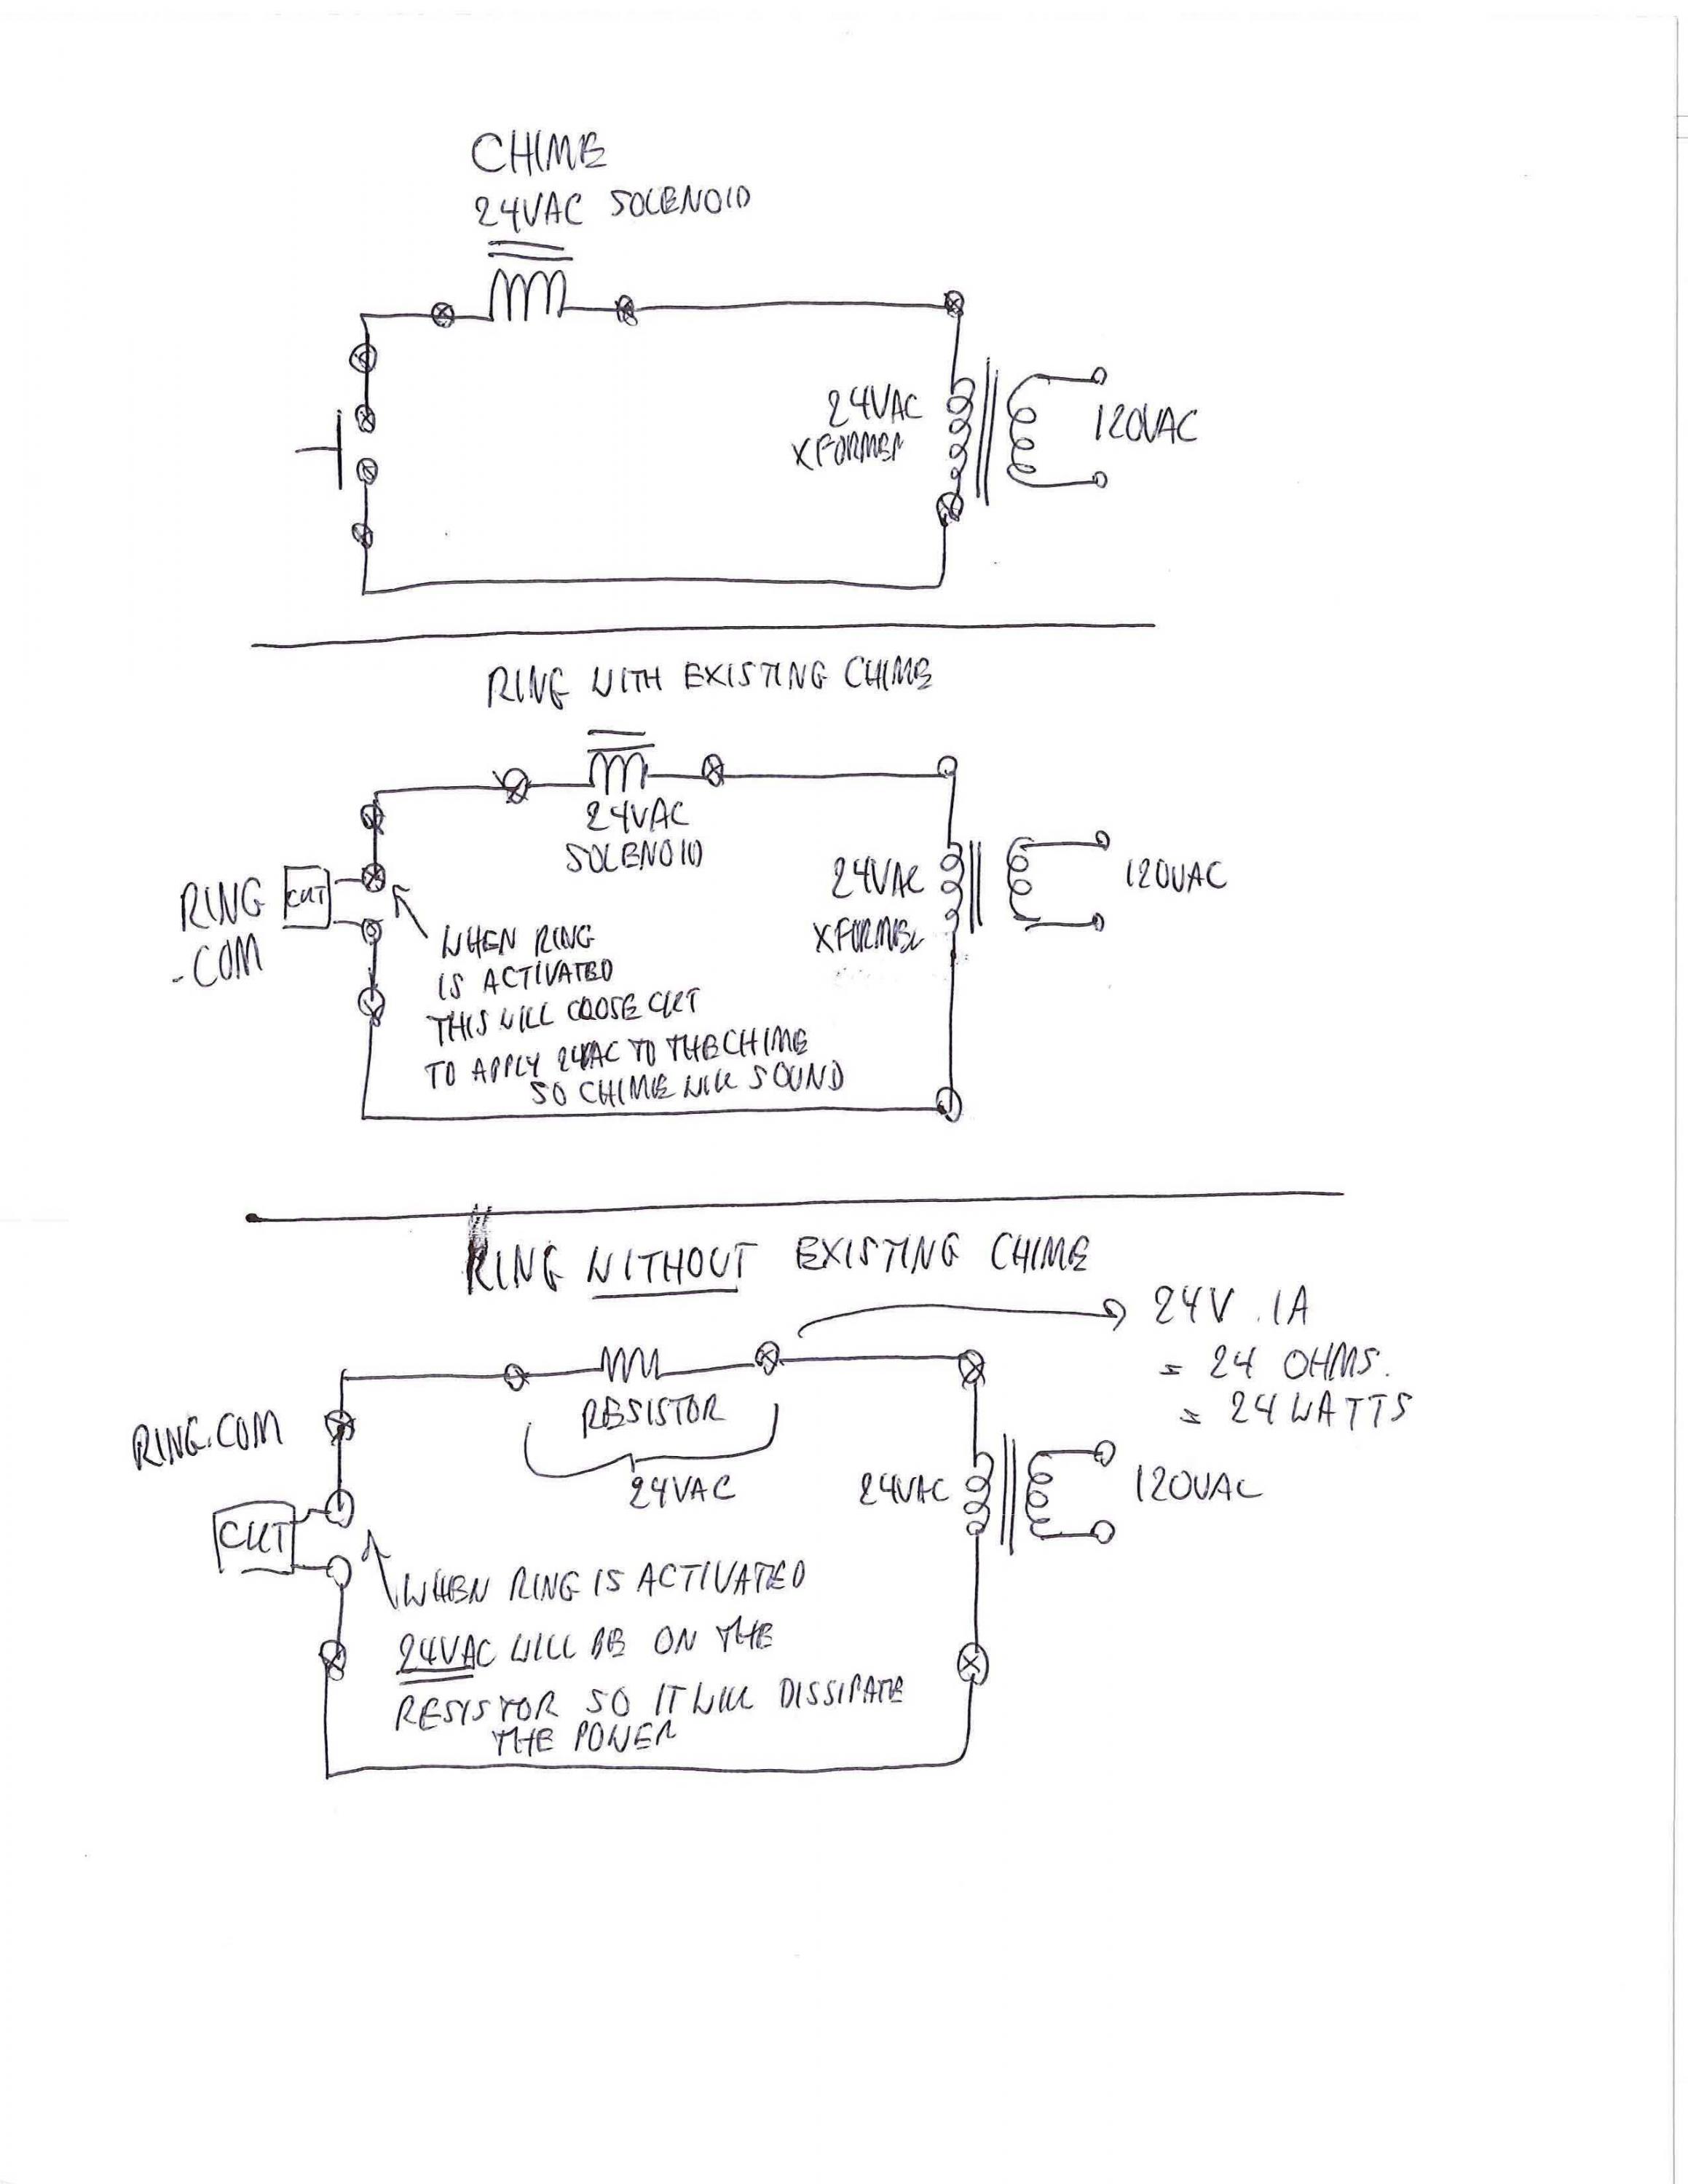 CHIME
24VAC SOLENOID
24VAC
XFORMER
120VAC
RING WITH EXISTING CHIME
24VAC
SOLENOID
RING
.COM
CKT
24VAC
XFORMER
120VAC
WHEN RING
IS ACTIVATED
THIS WILL CLOSE CKT
TO APPLY 24VAC TO THE CHIME
SO CHIME WILL SOUND
RING WITHOUT EXISTING CHIME
24V . 1A
= 24 OHMS.
= 24 WATTS
RESISTOR
24VAC
RING.COM
CKT
24VAC
120VAC
WHEN RING IS ACTIVATED
24VAC WILL BE ON THE
RESISTOR SO IT WILL DISSIPATE
THE POWER